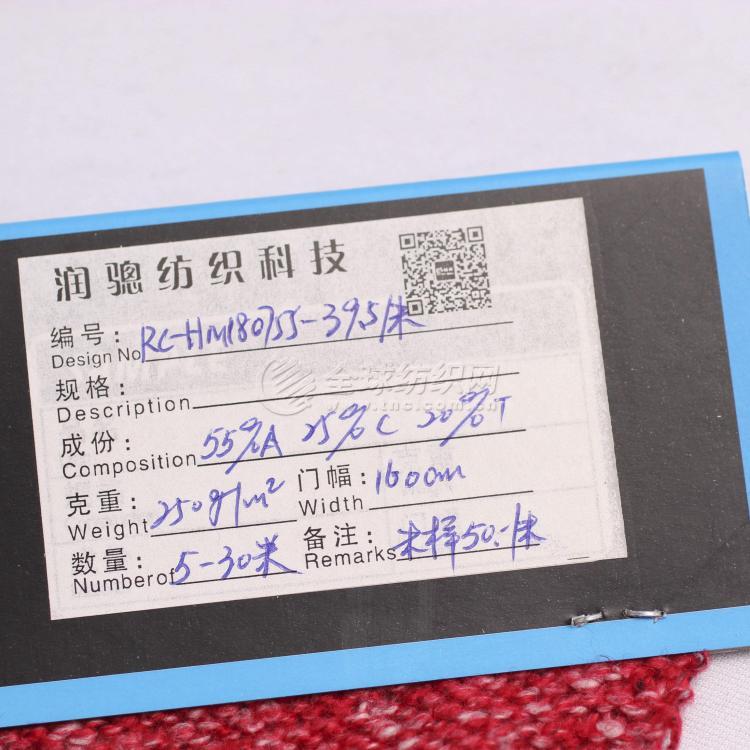 润骢纺织科技
编号: RC-HM180755-39.5/米
Design No
规格:
Description
全球纺织网
www.tnc.com.cn
成份: 55%A 25%C 20%T
Composition
克重: 250g/m² 门幅: 160cm
Weight Width
数量: 5-30米 备注: 米样50.-/米
Numberof Remarks